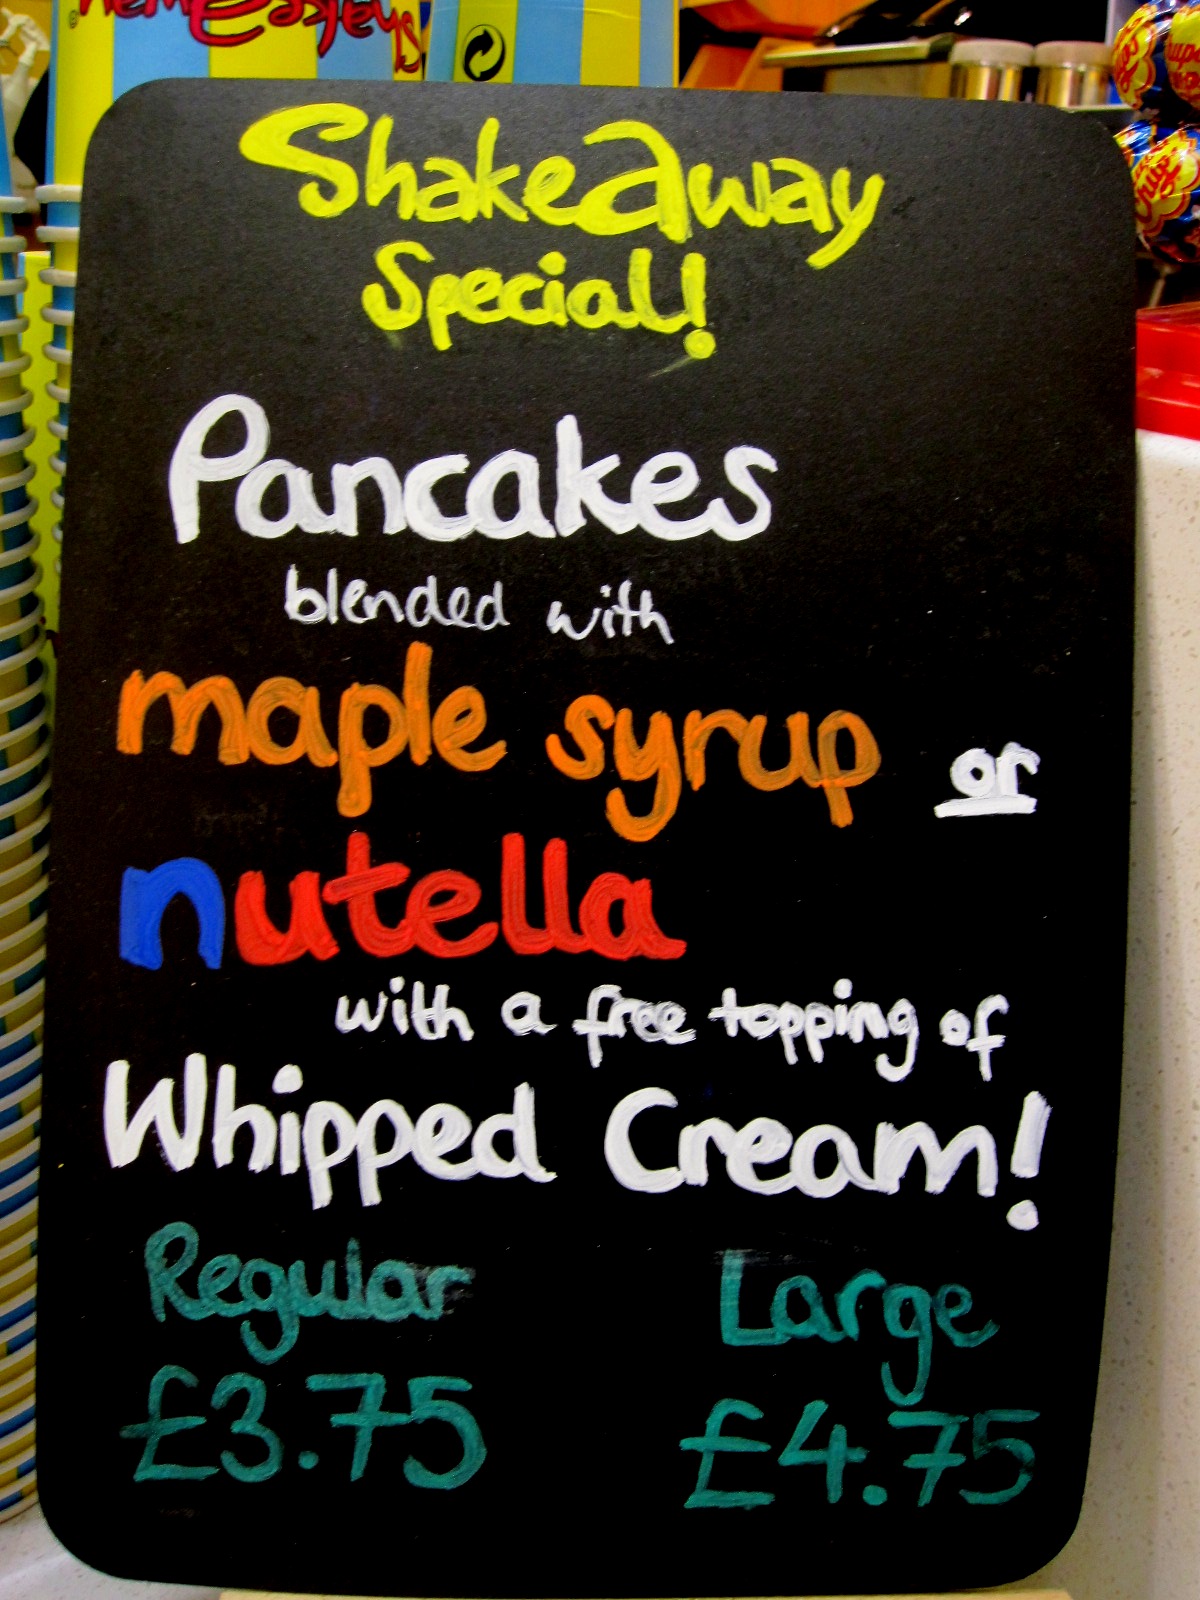 Shakeaway
Special!
Pancakes
blended with
maple syrup or
nutella
with a free topping of
Whipped Cream!
Regular Large
£3.75 £4.75